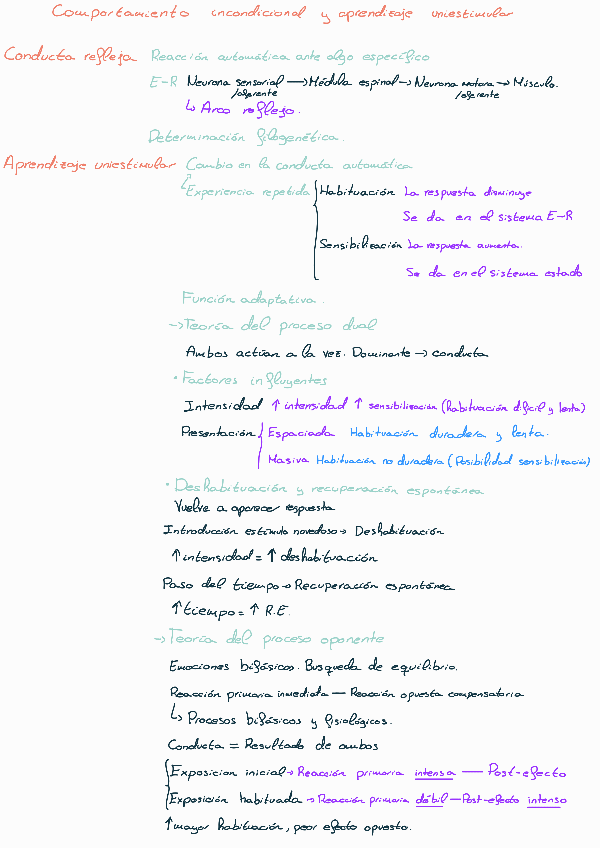 Comportamiento incondicional y aprendizaje uniestimular
Conducta refleja Reacción automática ante algo específico
E-R Neurona sensorial → Médula espinal → Neurona motora → Músculo.
/aferente /eferente
↳ Arco reflejo.
Determinación filogenética.
Aprendizaje uniestimular Cambio en la conducta automática
Experiencia repetida Habituación La respuesta disminuye
Se da en el sistema E-R
Sensibilización La respuesta aumenta.
Se da en el sistema estado
Función adaptativa.
→ Teoría del proceso dual
Ambos actúan a la vez. Dominante → conducta
• Factores influyentes
Intensidad ↑ intensidad ↑ sensibilización (habituación difícil y lenta)
Presentación Espaciada Habituación duradera y lenta.
Masiva Habituación no duradera (Posibilidad sensibilización)
• Deshabituación y recuperación espontánea
Vuelve a aparecer respuesta
Introducción estímulo novedoso → Deshabituación
↑ intensidad = ↑ deshabituación
Paso del tiempo → Recuperación espontánea
↑ tiempo = ↑ R.E.
→ Teoría del proceso oponente
Emociones bifásicas. Busqueda de equilibrio.
Reacción primaria inmediata — Reacción opuesta compensatoria
↳ Procesos bifásicos y fisiológicos.
Conducta = Resultado de ambos
Exposicion inicial → Reacción primaria intensa — Post-efecto
Exposición habituada → Reacción primaria débil — Post-efecto intenso
↑ mayor habituación, peor efecto opuesto.